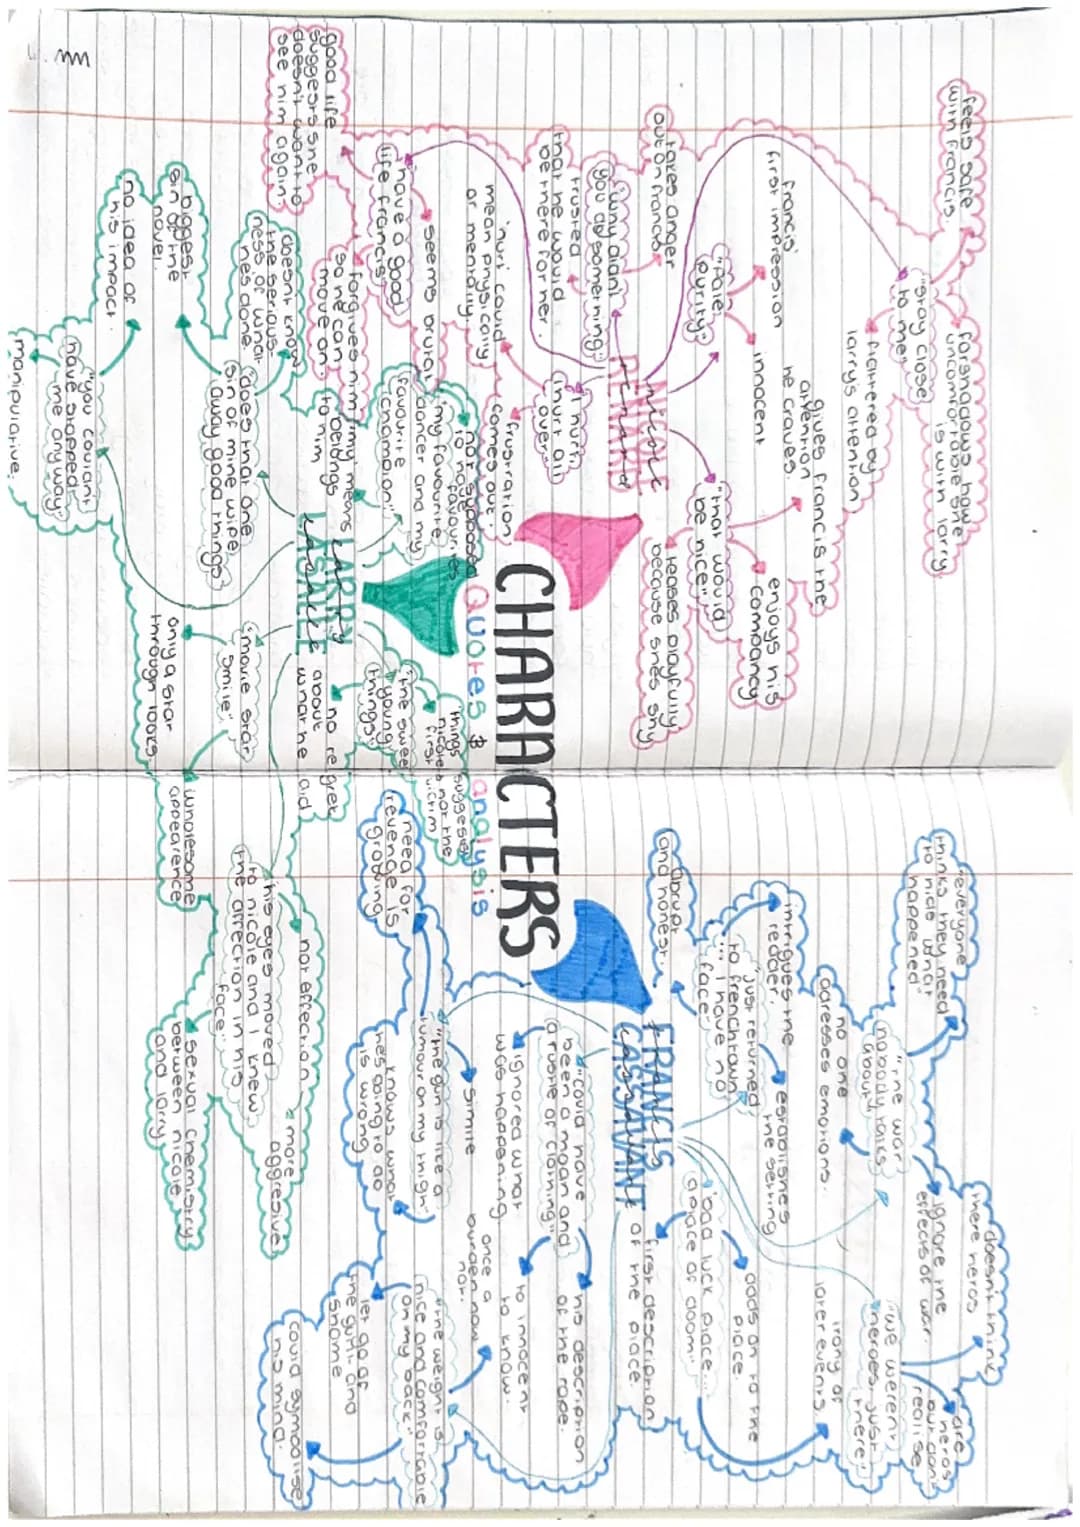 CHARACTERS
Quotes & analysis
NICOLE
RENARD
feels safe
with francis.
forshadows how
uncomfortable she
is with larry
"stay close
to me"
flattered by
larry's attention
francis'
first impression
"Pale
purity"
innocent
gives francis the
attention
he craves.
"that would
be nice"
enjoys his
company
teases playfully
because shes shy
takes anger
out on francis
"why didn't
you do something"
trusted
that he would
be there for her
"I hurt.
I hurt all
over"
'hurt' could
mean physically
or mentally
frustration
comes out.
"have a good
life francis"
seems brutal
good life
suggests she
doesn't want to
see him again.
forgives him
so he can
move on.
LARRY
LASALLE
"my favourite
dancer and my
favourite
champion"
not supposed
to have
favourites
my means
belongs
to him
"does that one
sin of mine wipe
away good things"
doesnt know
the serious-
ness of what
hes done
biggest
sin of the
novel.
"you couldnt
have stopped
me anyway"
no idea of
his impact.
manipulative.
"movie star
smile"
only a star
through looks.
wholesome
appearence
"the sweet
young
things"
'things' suggests
nicoles not the
first victim
no regret
about
what he did
"his eyes moved
to nicole and I knew
the affection in his
face"
not effection
more
aggressive
sexual chemistry
between nicole
and larry
FRANCIS
CASSAVANT
"just returned
to frenchtown
... I have no
face"
intrigues the
reader.
establishes
the setting
abrupt
and honest.
"The war
nobody talks
about"
"everyone
thinks they need
to hide what
happened"
no one
adresses emotions.
ignore the
effects of war.
"we weren't
heroes, just
there"
doesn't think
there heros
are
heros
but don't
realise
irony of
later events
"bad luck place...
a place of doom"
adds on to the
place.
first description
of the place.
"could have
been a moan and
a rustle of clothing"
his description
of the rape.
to innocent
to know.
ignored what
was happening.
"the gun is like a
tumour on my thigh"
simile
need for
revenge is
growing
knows what
hes going to do
is wrong
"the weight is
nice and comfortable
on my back"
once a
burden now
not.
let go of
the guilt and
shame
could symbolise
his mind.